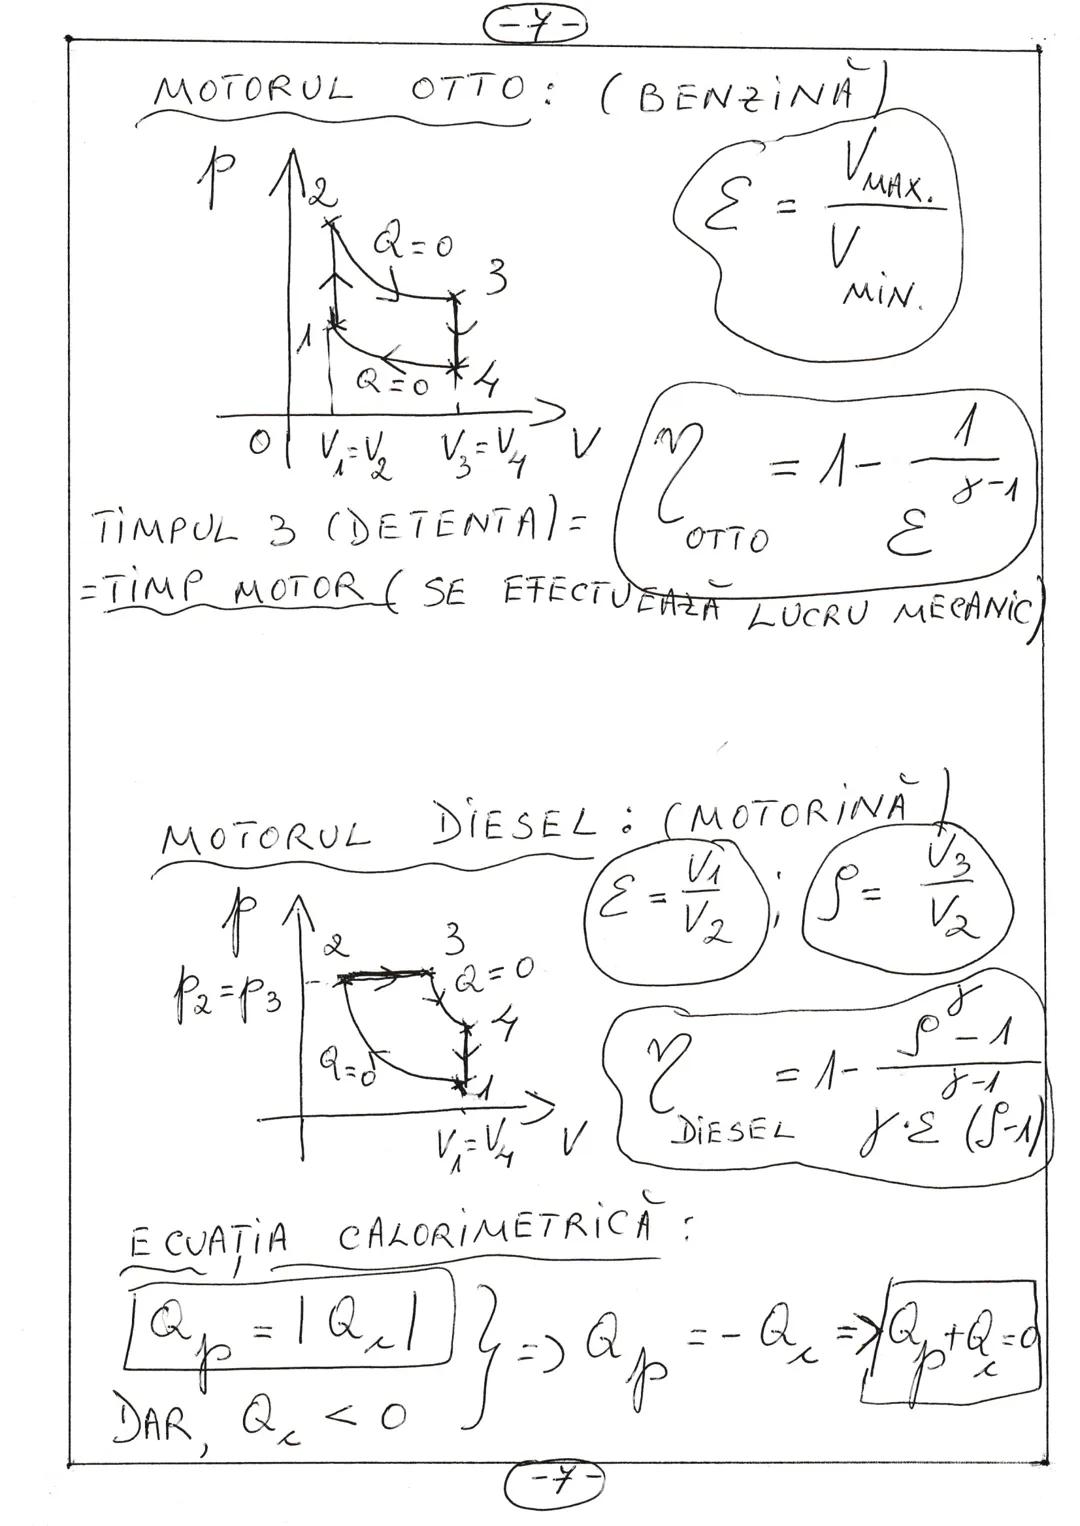 -7-
MOTORUL OTTO: (BENZINĂ)
p
2
Q=0
3
1
Q=0
4
0 V₁=V₂ V₃=V₄ V
ε = V_MAX. / V_MIN.
η_OTTO = 1 - 1 / ε^(γ-1)
TIMPUL 3 (DETENTA)=
=TIMP MOTOR (SE EFECTUEAZĂ LUCRU MECANIC)
MOTORUL DIESEL: (MOTORINĂ)
ε = V₁/V₂ ; ρ = V₃/V₂
p
2 3
p₂=p₃
Q=0
4
Q=0
1
V₁=V₄ V
η_DIESEL = 1 - (ρ^γ - 1) / (γ·ε^(γ-1) (ρ-1))
ECUAȚIA CALORIMETRICĂ:
Q_p = |Q_c| } => Q_p = - Q_c => Q_p + Q_c = 0
DAR, Q_c < 0
-7-